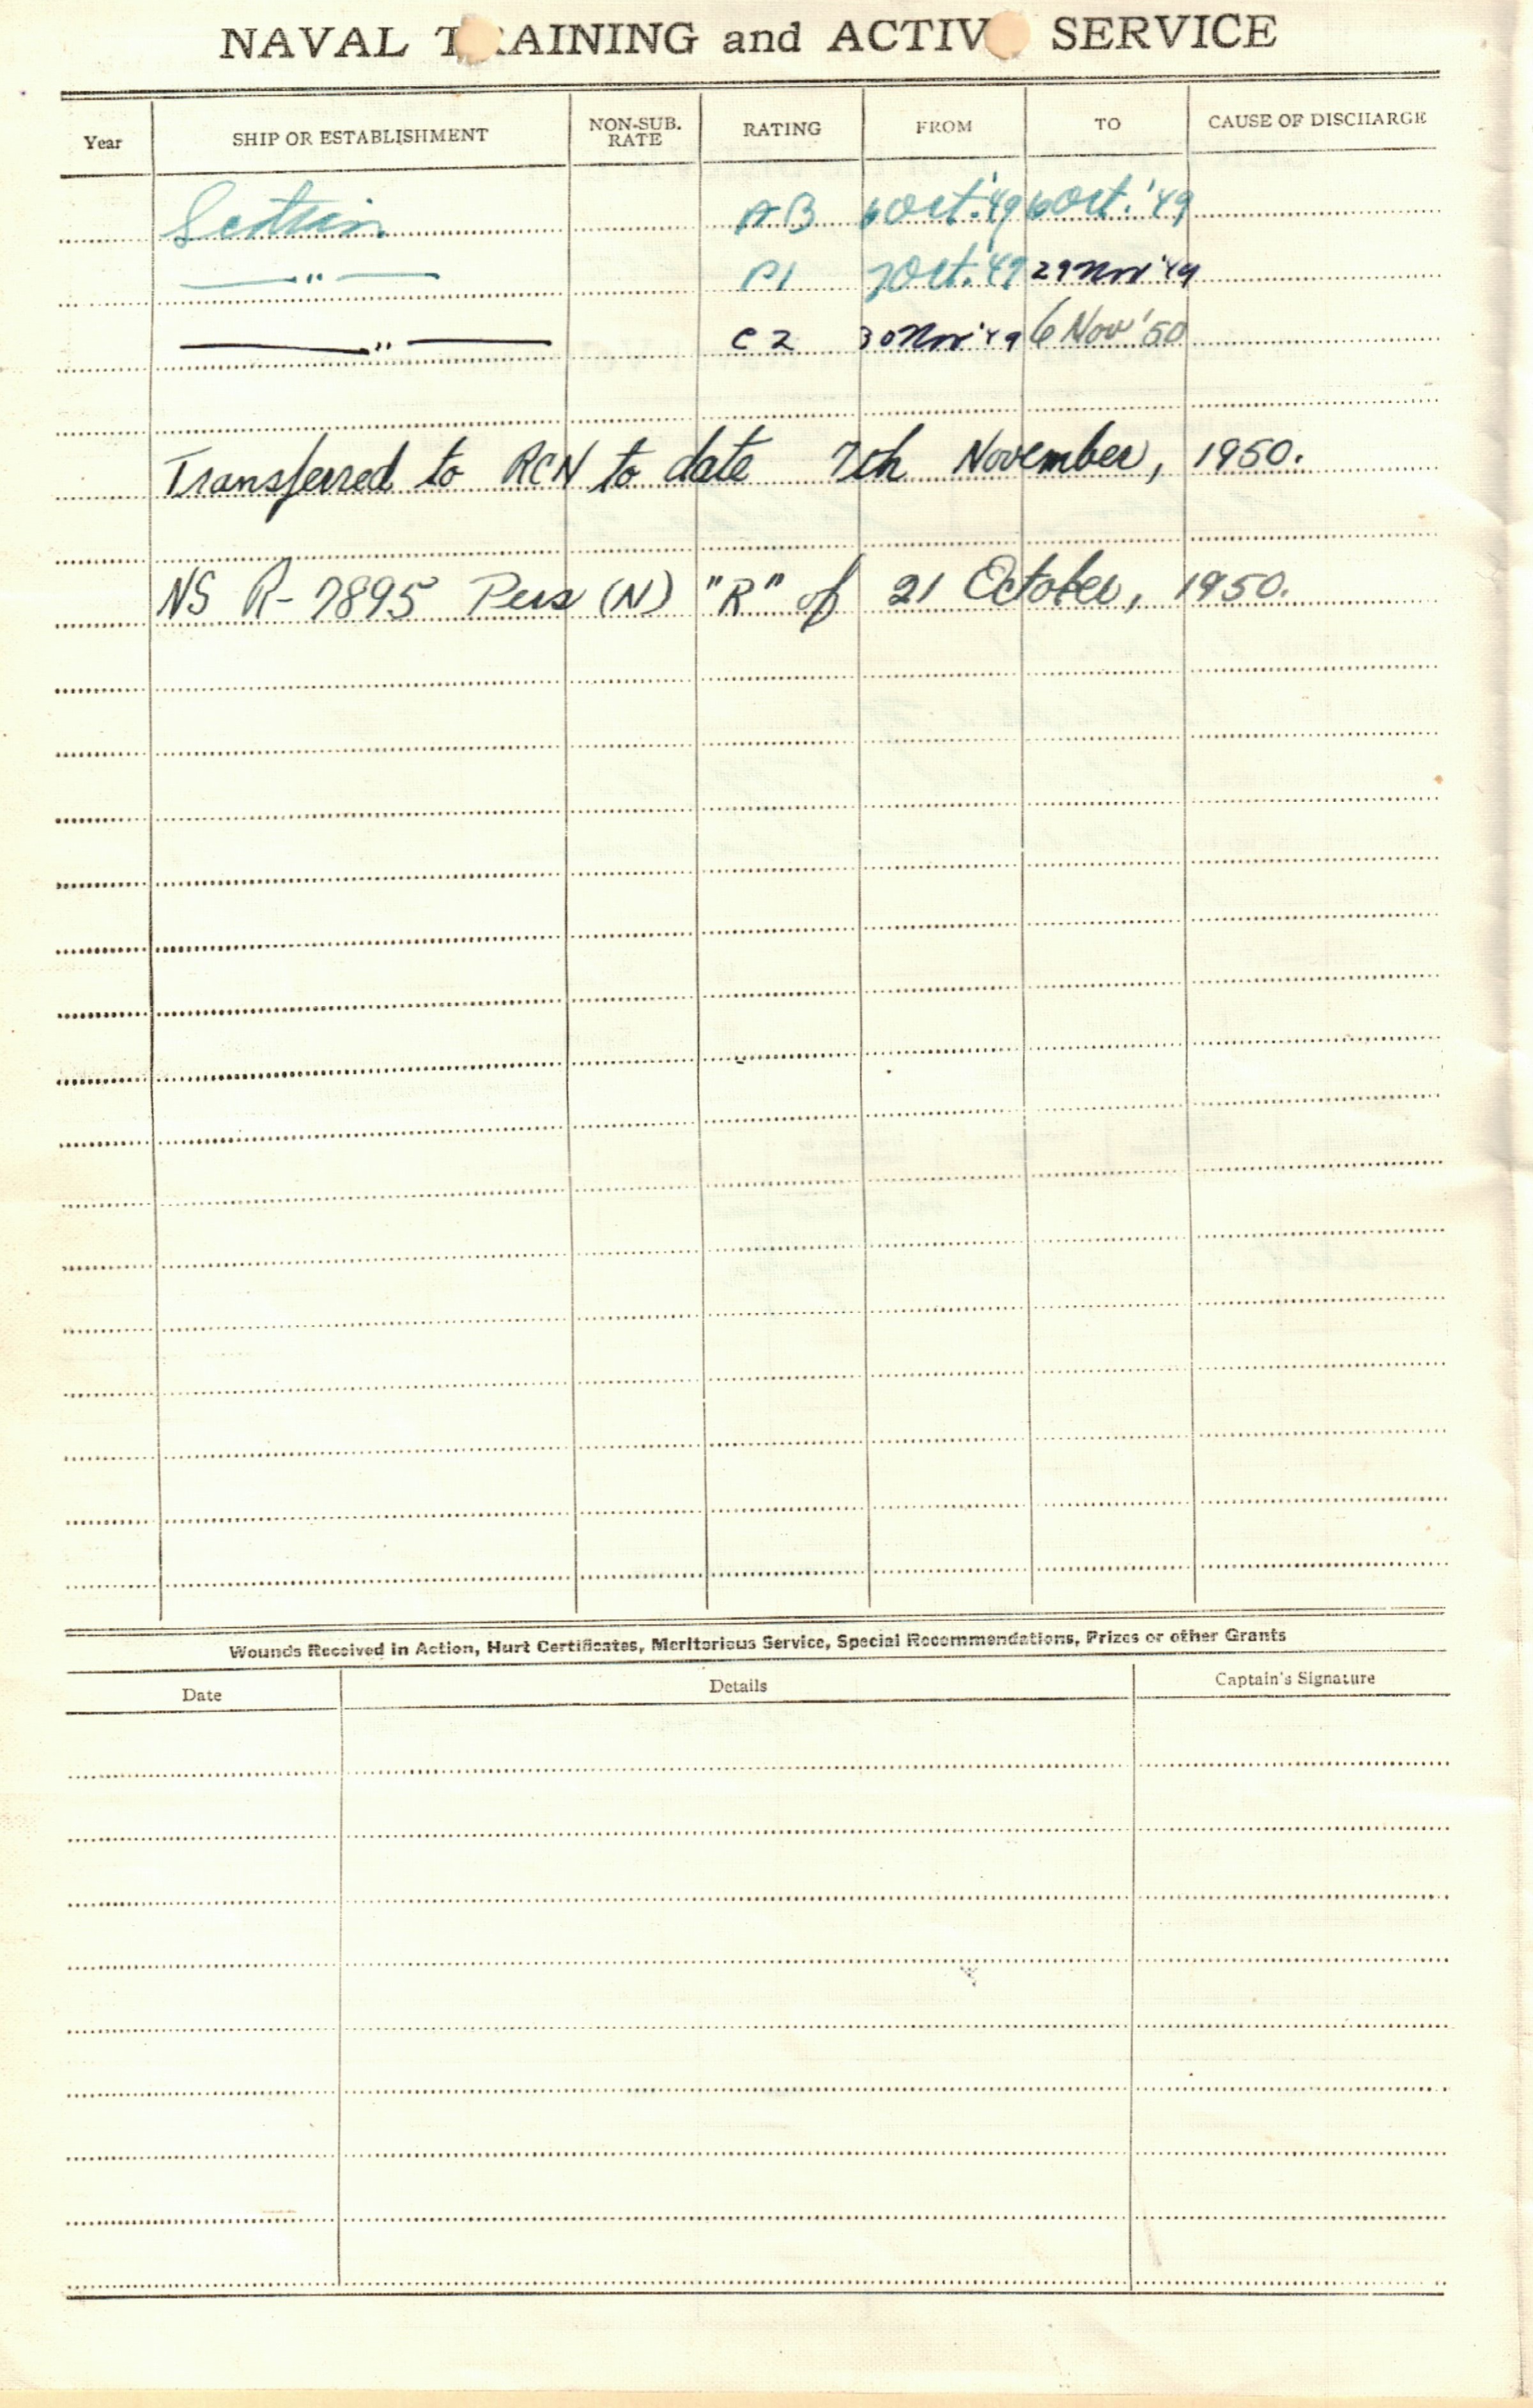 NAVAL TRAINING and ACTIVE SERVICE
Year SHIP OR ESTABLISHMENT NON-SUB. RATE RATING FROM TO CAUSE OF DISCHARGE
AB 6 Oct. '49 6 Oct. '49
— " — P1 7 Oct. '49 29 Nov '49
— " — C2 30 Nov '49 6 Nov '50
Transferred to RCN to date 7th November, 1950.
NS R-7895 Pers (N) "R" of 21 October, 1950.
Wounds Received in Action, Hurt Certificates, Meritorious Service, Special Recommendations, Prizes or other Grants
Date Details Captain's Signature